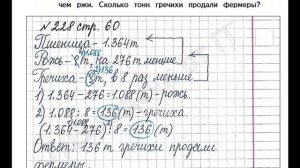 чем ржи. Сколько тонн гречихи продали фермеры?
№ 228 стр. 60
Пшеница - 1.364т
1.088
Рожь - ?т, на 276т меньше
136
Гречиха - ?т, в 8 раз меньше
1) 1.364 - 276 = 1.088(т) - рожь.
2) 1.088 : 8 = 136 (т) - гречиха
1.088
(1.364 - 276) : 8 = 136 (т)
Ответ: 136 т гречихи продали
фермеры.